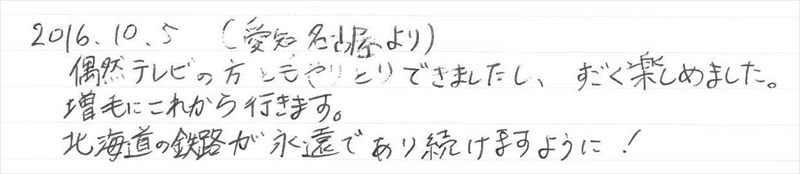 2016.10.5 (愛知 名古屋より)
偶然テレビの方ともやりとりできましたし、すごく楽しめました。
増毛にこれから行きます。
北海道の鉄路が永遠であり続けますように!